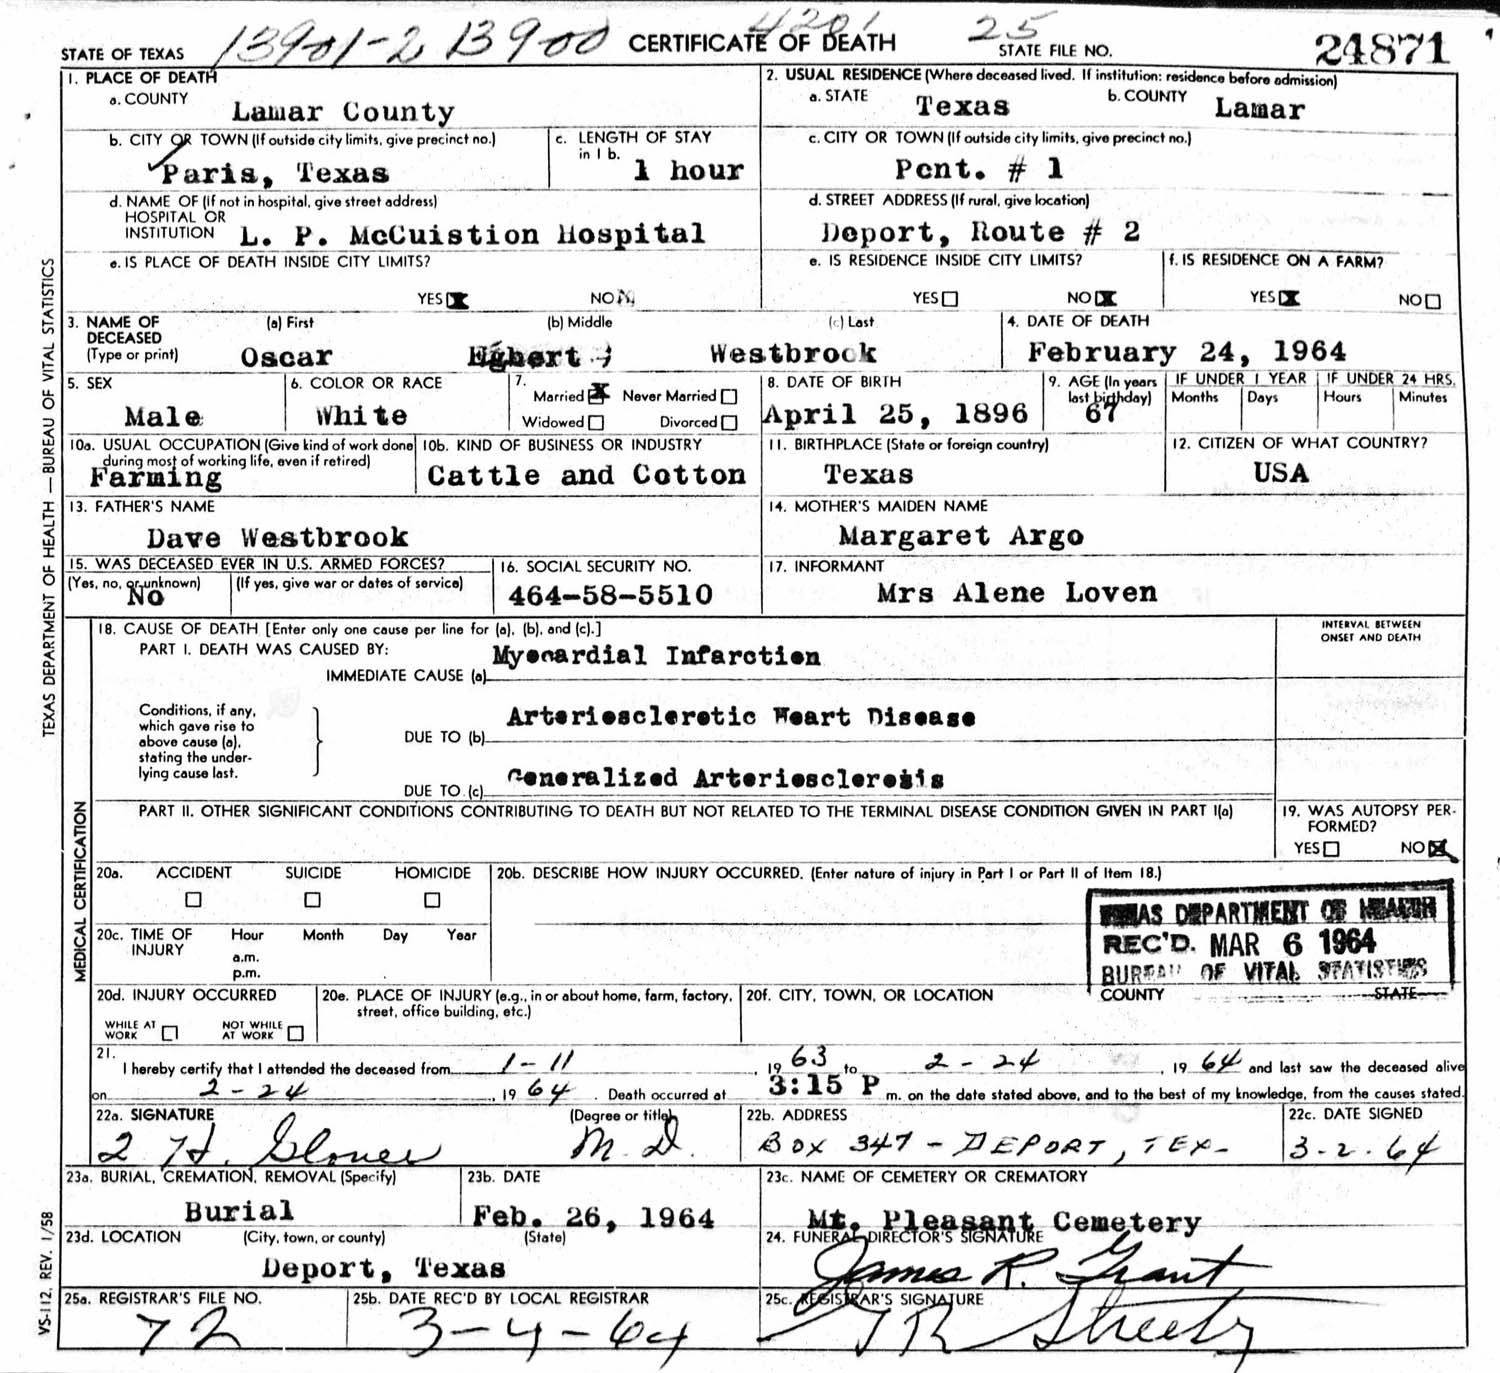 STATE OF TEXAS 13901-2 13900 CERTIFICATE OF DEATH 4201 25 STATE FILE NO. 24871
1. PLACE OF DEATH
a. COUNTY Lamar County
2. USUAL RESIDENCE (Where deceased lived. If institution: residence before admission)
a. STATE Texas b. COUNTY Lamar
b. CITY OR TOWN (If outside city limits, give precinct no.) Paris, Texas
c. LENGTH OF STAY in 1 b. 1 hour
c. CITY OR TOWN (If outside city limits, give precinct no.) Pcnt. # 1
d. NAME OF (If not in hospital, give street address)
HOSPITAL OR
INSTITUTION L. P. McCuistion Hospital
d. STREET ADDRESS (If rural, give location)
Deport, Route # 2
e. IS PLACE OF DEATH INSIDE CITY LIMITS?
YES NO
e. IS RESIDENCE INSIDE CITY LIMITS?
YES NO
f. IS RESIDENCE ON A FARM?
YES NO
3. NAME OF DECEASED (Type or print)
(a) First (b) Middle (c) Last
Oscar Egbert Westbrook
4. DATE OF DEATH
February 24, 1964
5. SEX
Male
6. COLOR OR RACE
White
7.
Married Never Married
Widowed Divorced
8. DATE OF BIRTH
April 25, 1896
9. AGE (In years last birthday)
67
IF UNDER 1 YEAR
Months Days
IF UNDER 24 HRS.
Hours Minutes
10a. USUAL OCCUPATION (Give kind of work done during most of working life, even if retired)
Farming
10b. KIND OF BUSINESS OR INDUSTRY
Cattle and Cotton
11. BIRTHPLACE (State or foreign country)
Texas
12. CITIZEN OF WHAT COUNTRY?
USA
13. FATHER'S NAME
Dave Westbrook
14. MOTHER'S MAIDEN NAME
Margaret Argo
15. WAS DECEASED EVER IN U.S. ARMED FORCES?
(Yes, no, or unknown) (If yes, give war or dates of service)
No
16. SOCIAL SECURITY NO.
464-58-5510
17. INFORMANT
Mrs Alene Loven
18. CAUSE OF DEATH [Enter only one cause per line for (a), (b), and (c).]
INTERVAL BETWEEN
ONSET AND DEATH
PART I. DEATH WAS CAUSED BY:
IMMEDIATE CAUSE (a) Myocardial Infarction
Conditions, if any,
which gave rise to
above cause (a),
stating the under-
lying cause last.
DUE TO (b) Arteriosclerotic Heart Disease
DUE TO (c) Generalized Arteriosclerosis
PART II. OTHER SIGNIFICANT CONDITIONS CONTRIBUTING TO DEATH BUT NOT RELATED TO THE TERMINAL DISEASE CONDITION GIVEN IN PART I(a)
19. WAS AUTOPSY PER-
FORMED?
YES NO
20a. ACCIDENT SUICIDE HOMICIDE
20b. DESCRIBE HOW INJURY OCCURRED. (Enter nature of injury in Part I or Part II of Item 18.)
TEXAS DEPARTMENT OF HEALTH
REC'D. MAR 6 1964
BUREAU OF VITAL STATISTICS
20c. TIME OF INJURY
Hour Month Day Year
a.m.
p.m.
20d. INJURY OCCURRED
WHILE AT WORK NOT WHILE AT WORK
20e. PLACE OF INJURY (e.g., in or about home, farm, factory,
street, office building, etc.)
20f. CITY, TOWN, OR LOCATION COUNTY STATE
21.
I hereby certify that I attended the deceased from 1-11, 1963 to 2-24, 1964 and last saw the deceased alive
on 2-24, 1964. Death occurred at 3:15 P m. on the date stated above, and to the best of my knowledge, from the causes stated.
22a. SIGNATURE (Degree or title)
Glover M.D.
22b. ADDRESS
BOX 347 - DEPORT, TEX-
22c. DATE SIGNED
3-2-64
23a. BURIAL, CREMATION, REMOVAL (Specify)
Burial
23b. DATE
Feb. 26, 1964
23c. NAME OF CEMETERY OR CREMATORY
Mt. Pleasant Cemetery
23d. LOCATION (City, town, or county) (State)
Deport, Texas
24. FUNERAL DIRECTOR'S SIGNATURE
James R. Grant
25a. REGISTRAR'S FILE NO.
72
25b. DATE REC'D BY LOCAL REGISTRAR
3-4-64
25c. REGISTRAR'S SIGNATURE
TEXAS DEPARTMENT OF HEALTH — BUREAU OF VITAL STATISTICS
MEDICAL CERTIFICATION
VS-112, REV. 1/58